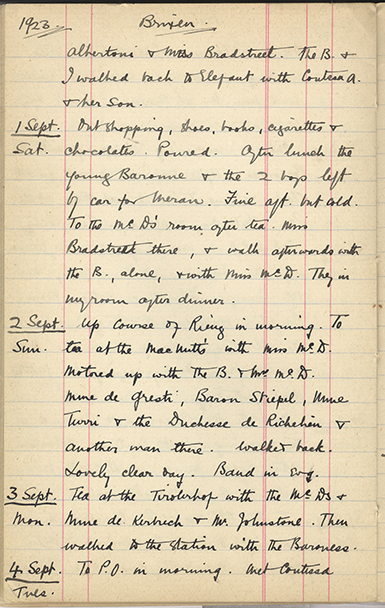 1923. Brixen.
Albertoni & Miss Bradstreet. The B. &
I walked back to Elefant with Contessa A.
& her Son.
1 Sept. Out shopping, shoes, books, cigarettes &
Sat. chocolates. Poured. After lunch the
young Baronne & the 2 boys left
by car for Meran. Fine aft. but cold.
To the McD's room after tea. Miss
Bradstreet there, & walk afterwards with
the B., alone, & with Miss McD. They in
my room after dinner.
2 Sept. Up course of Rienz in morning. To
Sun. tea at the MacNutts' with Miss McD.
Motored up with the B. & Mrs McD.
Mme de Gresti, Baron Stiepel, Mme
& the Duchesse de Richelieu &
another man there. Walked back.
Lovely clear day. Band in Evg.
3 Sept. Tea at the Tirolerhof with the McDs &
Mon. Mme de & Mr. Johnstone. Then
walked to the station with the Baroness.
4 Sept. To P.O. in morning. Met Contessa
Tues.